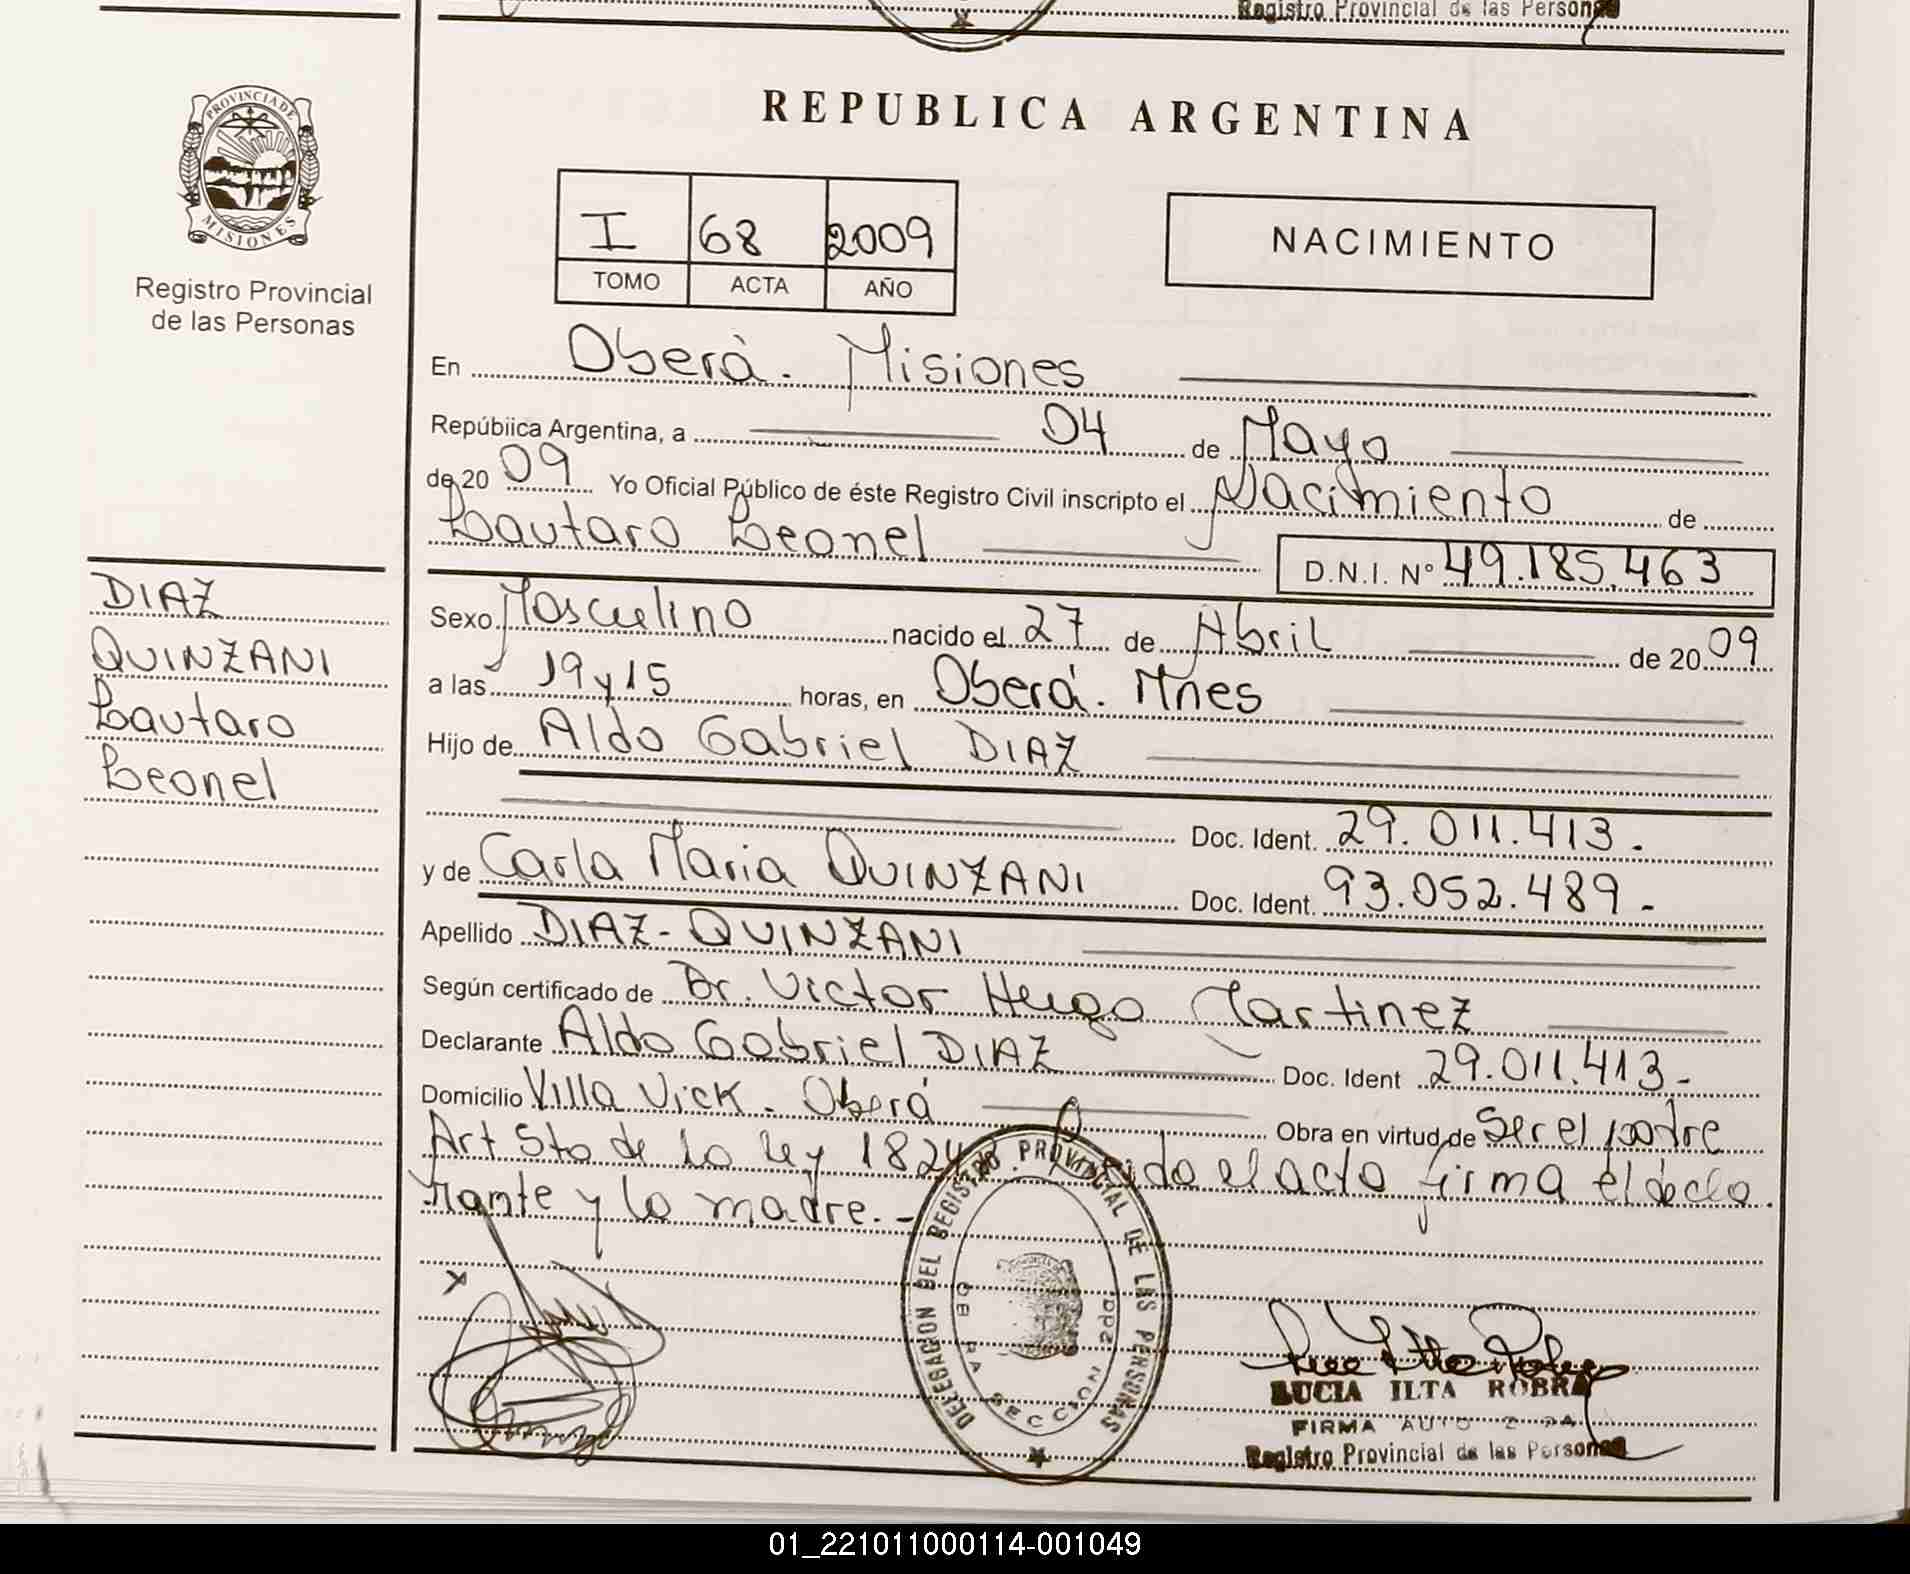 Registro Provincial de las Personas
PROVINCIA DE
MISIONES
Registro Provincial
de las Personas
REPUBLICA ARGENTINA
I 68 2009
TOMO ACTA AÑO
NACIMIENTO
En Oberá. Misiones
República Argentina, a 04 de Mayo
de 20 09 Yo Oficial Público de éste Registro Civil inscripto el Nacimiento de
Lautaro Leonel D.N.I. N° 49.185.463
DIAZ
QUINZANI
Lautaro
Leonel
Sexo Masculino nacido el 27 de Abril de 20 09
a las 19 y 15 horas, en Oberá. Mnes
Hijo de Aldo Gabriel DIAZ
Doc. Ident. 29.011.413.
y de Carla Maria QUINZANI Doc. Ident. 93.052.489-
Apellido DIAZ-QUINZANI
Según certificado de Dr. Victor Hugo Martinez
Declarante Aldo Gabriel DIAZ Doc. Ident 29.011.413-
Domicilio Villa Vick - Oberá Obra en virtud de Ser el padre
Art 5to de la ley 182 el acto firma el decla
rante y la madre.-
DELEGACION DEL REGISTRO PROVINCIAL DE LAS PERSONAS
OBERA SECCION 2da
LUCIA ILTA
FIRMA
Registro Provincial de las Personas
01_221011000114-001049